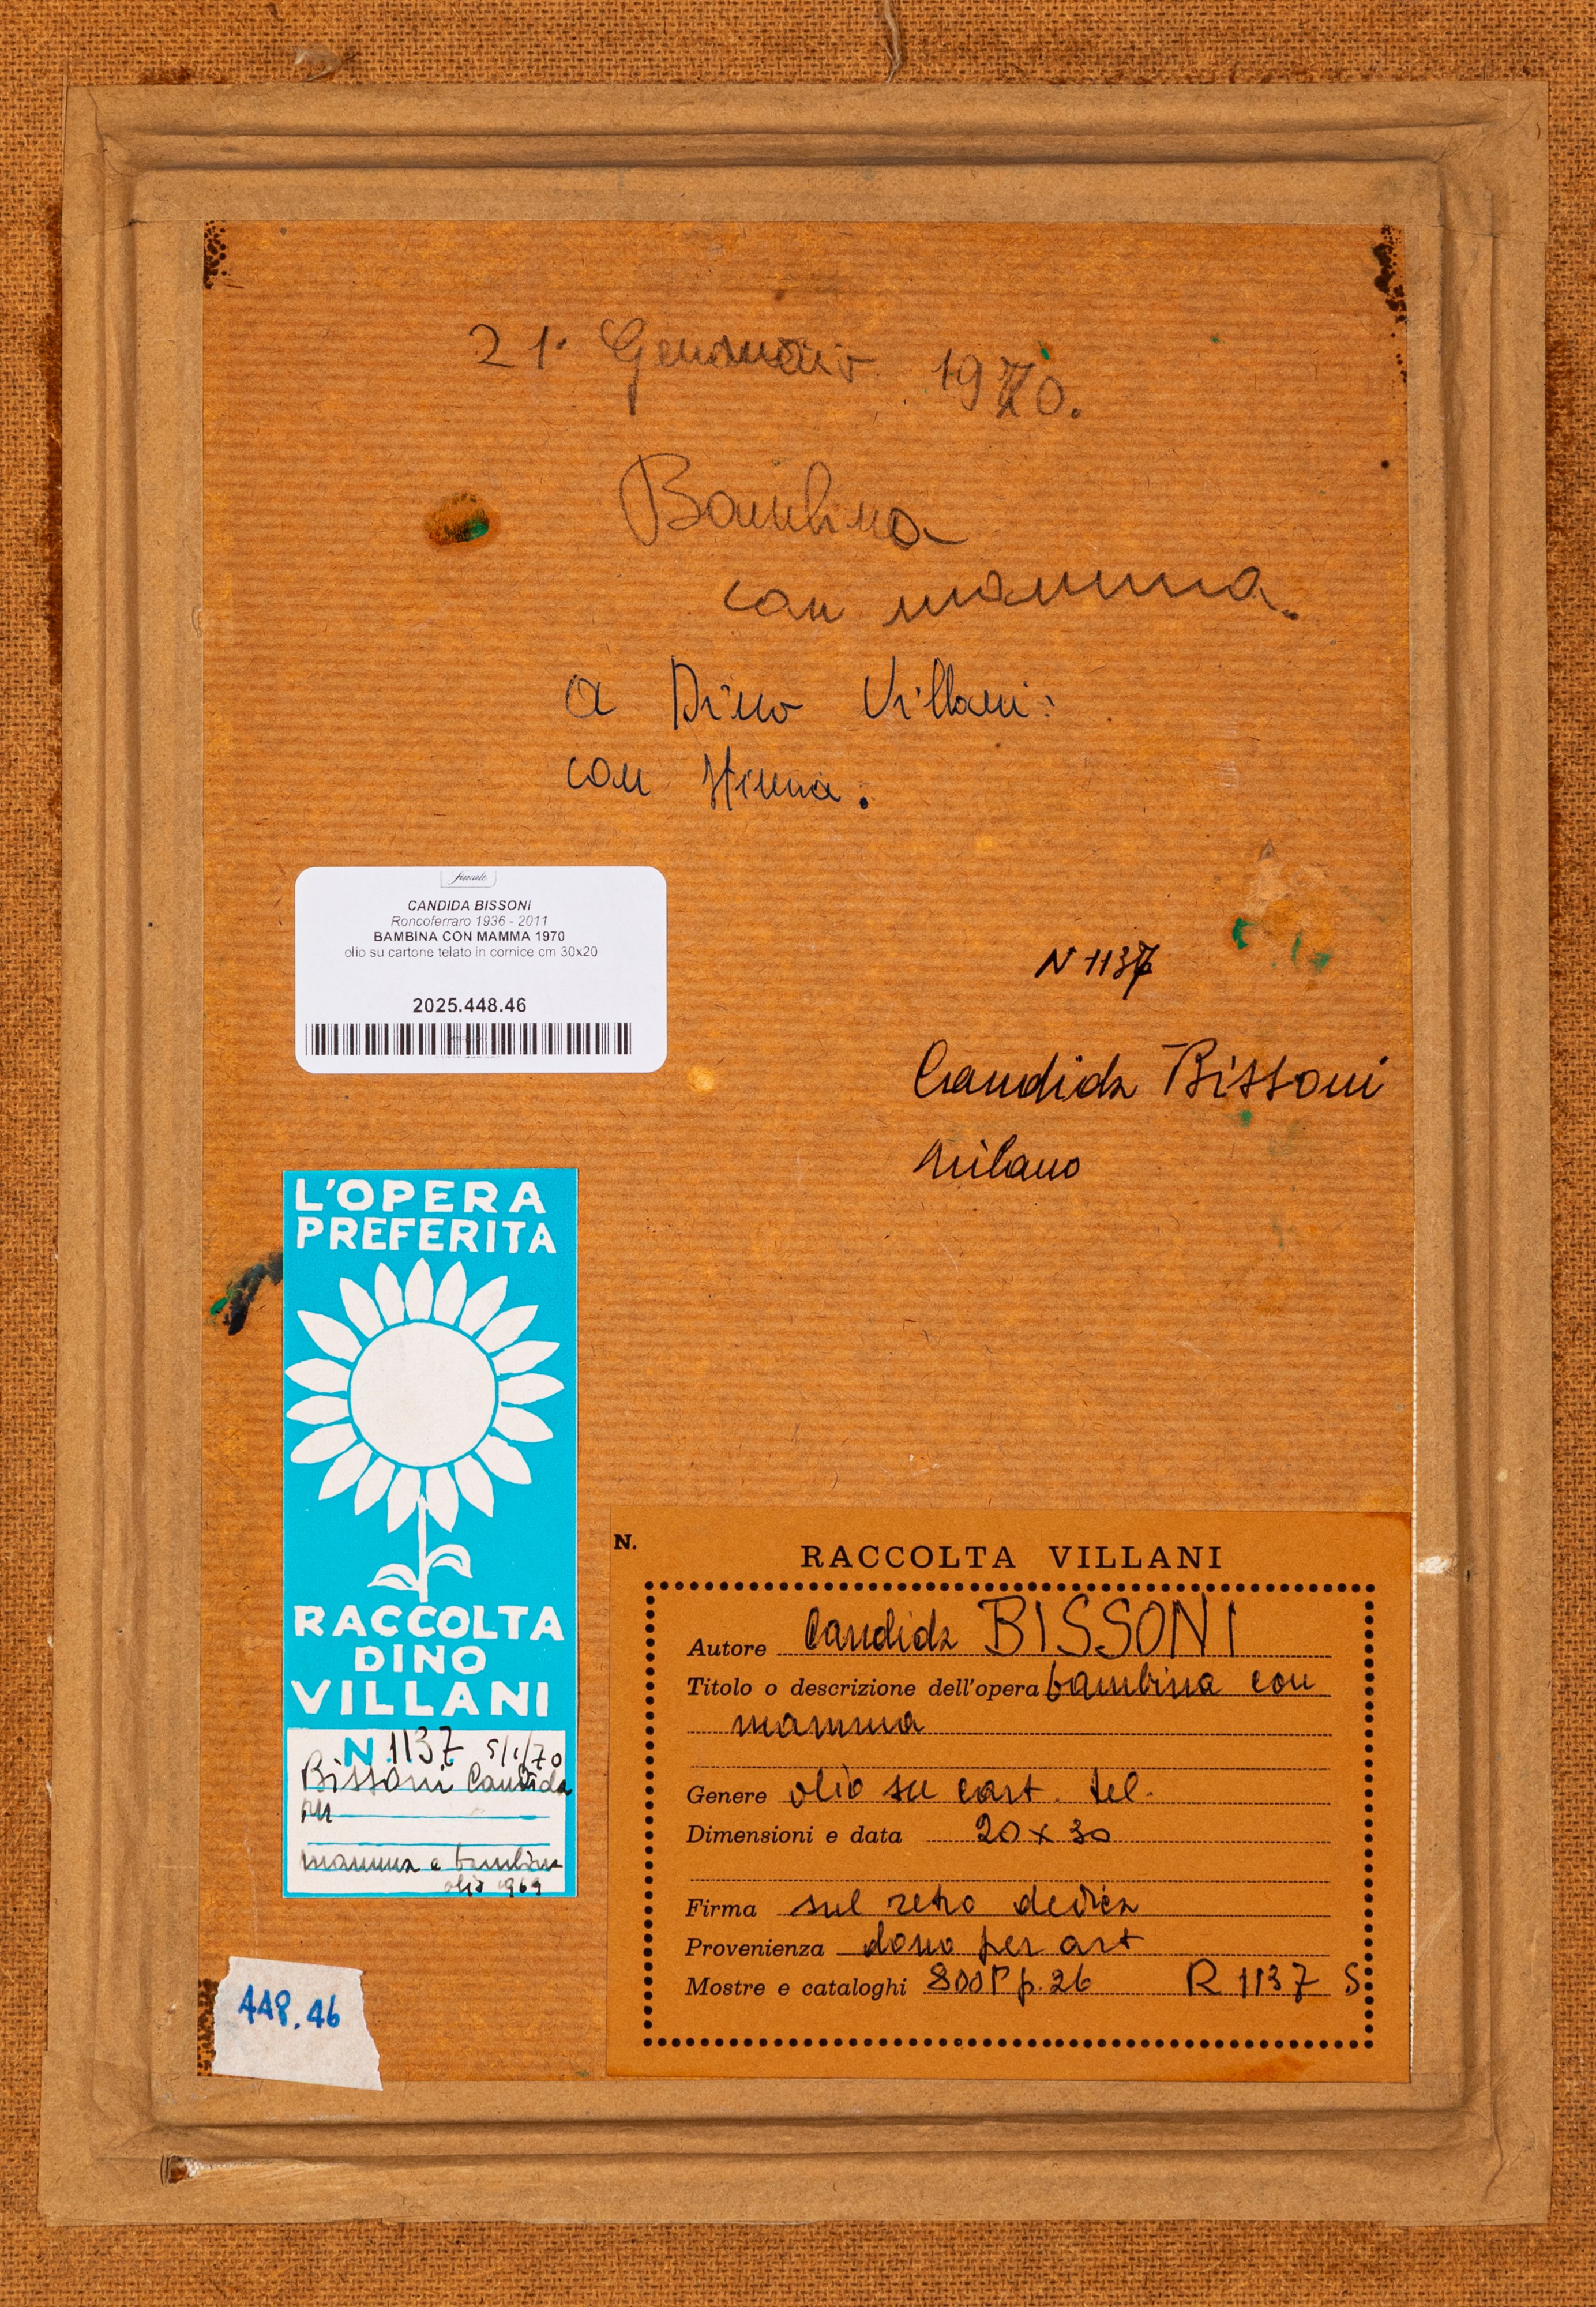 21. Gennaio 1970.
Bambina
con mamma.
a Dino Villani:
con stima.
finarte
CANDIDA BISSONI
Roncoferraro 1936 - 2011
BAMBINA CON MAMMA 1970
olio su cartone telato in cornice cm 30x20
2025.448.46
N 1137
Candida Bissoni
Milano
L'OPERA
PREFERITA
RACCOLTA
DINO
VILLANI
N 1137 5/1/70
Bissoni Candida
mamma e bambina
olio 1969
448.46
N.
RACCOLTA VILLANI
Autore Candida BISSONI
Titolo o descrizione dell'opera bambina con
mamma
Genere olio su cart. tel.
Dimensioni e data 20 x 30
Firma sul retro dedica
Provenienza dono per art
Mostre e cataloghi p. 26 R 1137 S